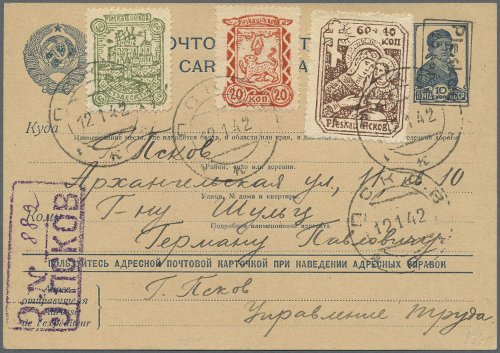 ПОЧТО
CAR
60+40
КОП
20 КОП 20
PLESKAU ПСКОВ
10
КОП
ПОЧТА СССР
ПСКОВ
12 1 42
12.1.42
Куда
Наименование места, где находится почта, и области или края, а для станций наименование железной дороги
Псков
Район, село или деревня.
Архангельская ул, 10
Улица, № дома и квартиры
Кому
Г-ну Шульц
Подробное наименование адресата
Герману Павловичу
ПОЛЬЗУЙТЕСЬ АДРЕСНОЙ ПОЧТОВОЙ КАРТОЧКОЙ ПРИ НАВЕДЕНИИ АДРЕСНЫХ СПРАВОК
ПСКОВ
12.1.42
№ 882
Адрес
отправителя
Г. Псков
Управление Труда.